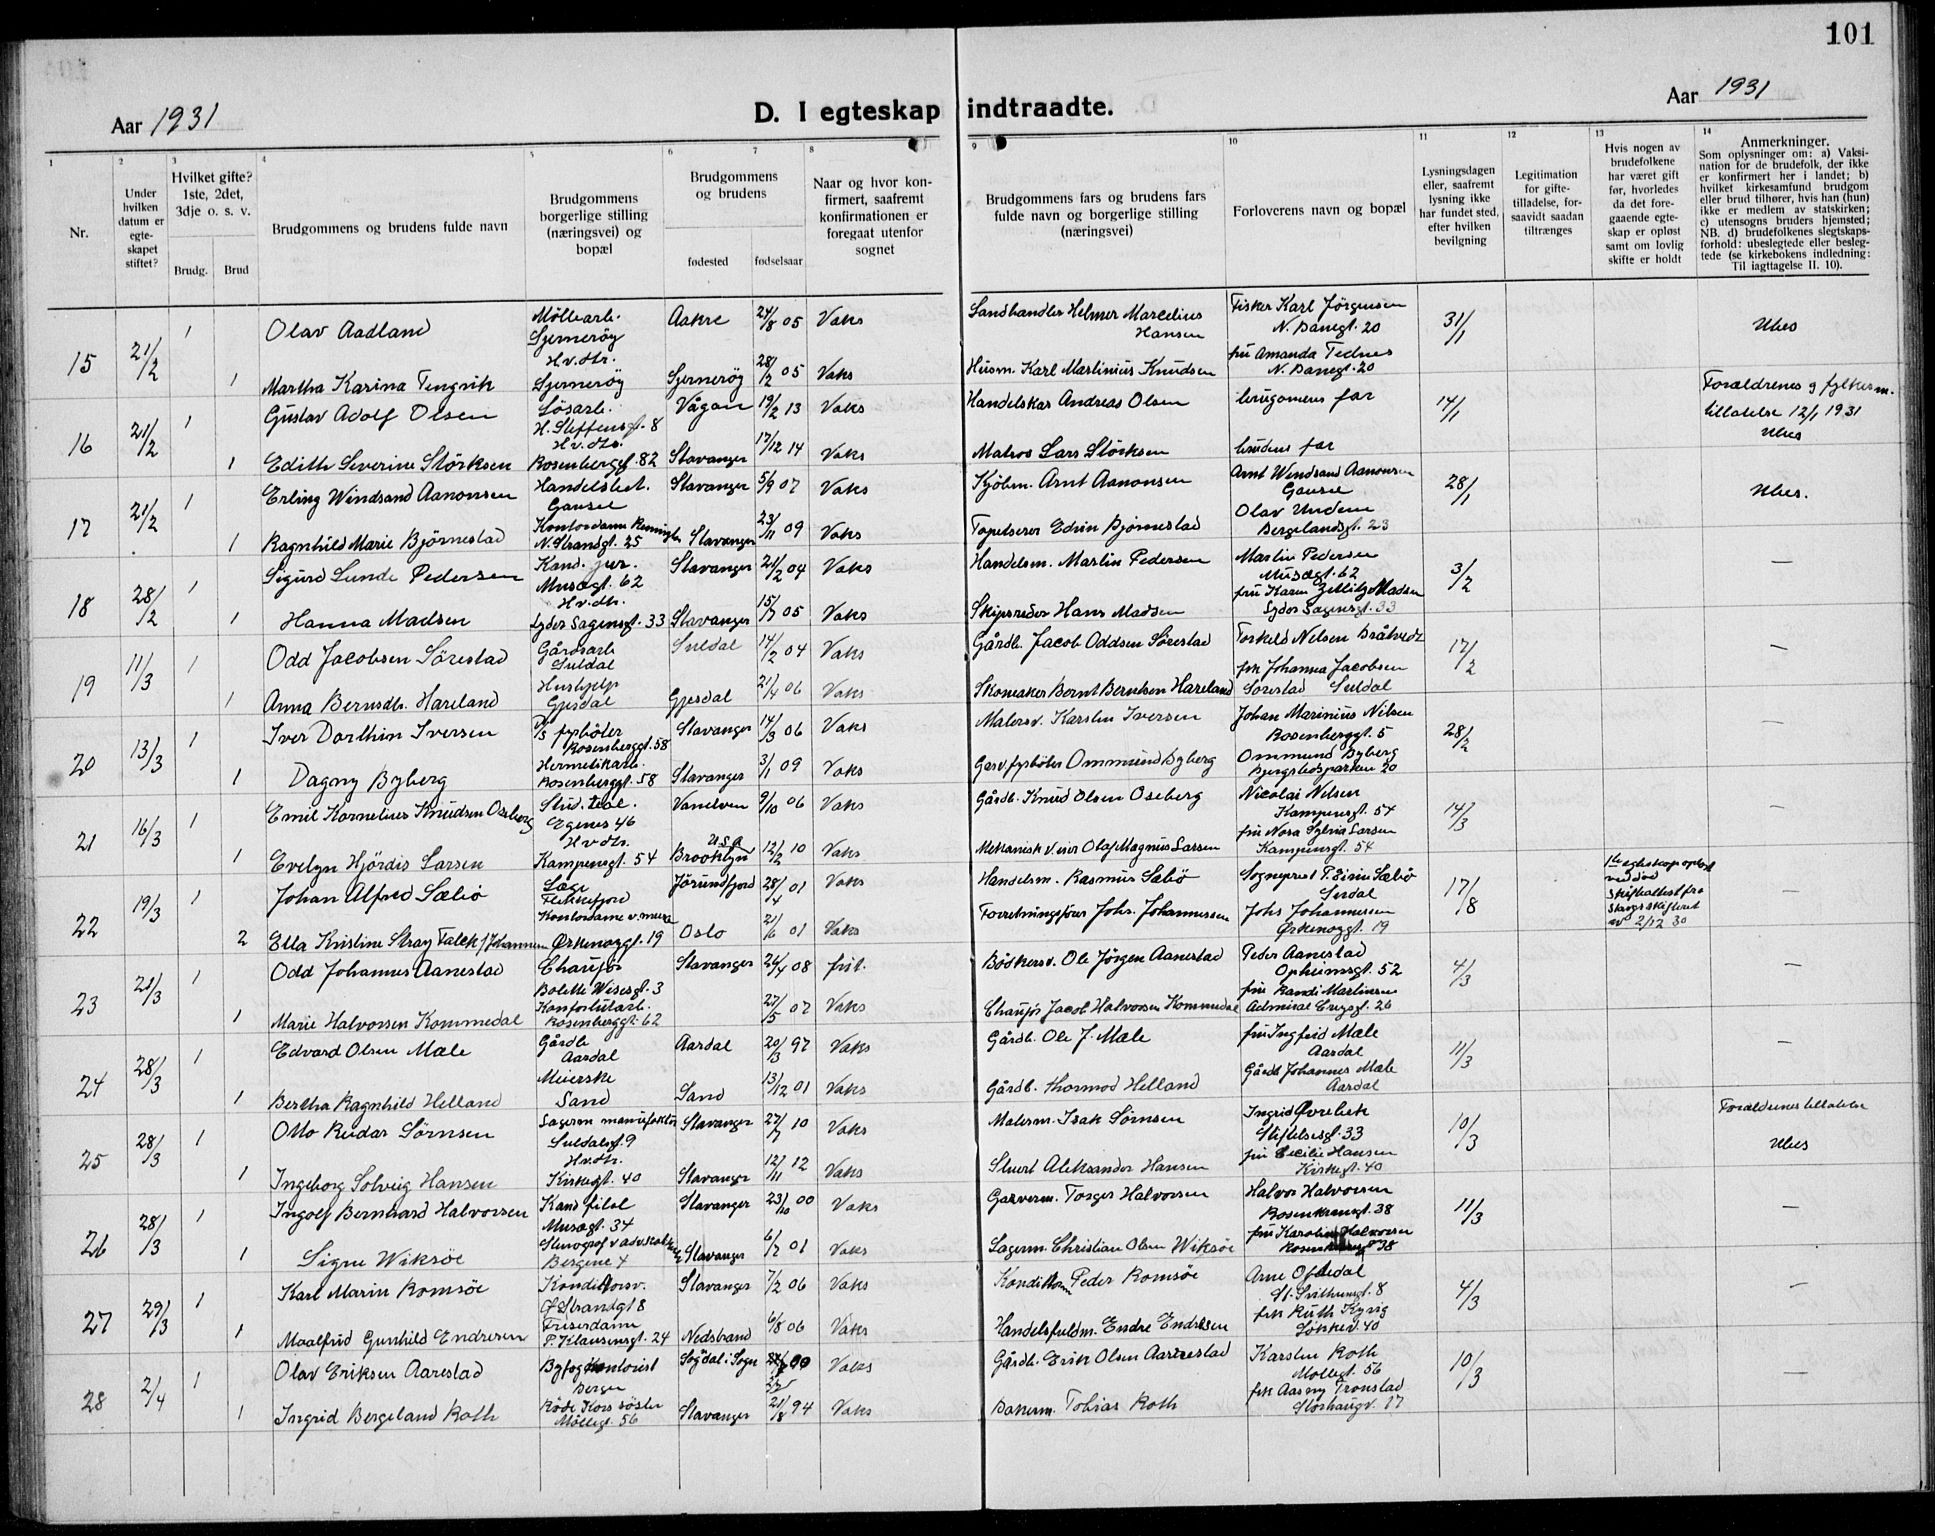 101
Aar 1931
D. I egteskap indtraadte.
Aar 1931
1 2 3 4 5 6 7 8 9 10 11 12 13 14
Nr.
Under hvilken datum er egte-skapet stiftet?
Hvilket gifte? 1ste, 2det, 3dje o. s. v.
Brudg. Brud
Brudgommens og brudens fulde navn
Brudgommens borgerlige stilling (næringsvei) og bopæl
Brudgommens og brudens
fødested fødselsaar
Naar og hvor kon-firmert, saafremt konfirmationen er foregaat utenfor sognet
Brudgommens fars og brudens fars fulde navn og borgerlige stilling (næringsvei)
Forloverens navn og bopæl
Lysningsdagen eller, saafremt lysning ikke har fundet sted, efter hvilken bevilgning
Legitimation for gifte-tilladelse, for-saavidt saadan tiltrænges
Hvis nogen av brudefolkene har været gift før, hvorledes da det fore-gaaende egte-skap er opløst samt om lovlig skifte er holdt
Anmerkninger.
Som oplysninger om: a) Vaksi-nation for de brudefolk, der ikke er konfirmert her i landet; b) hvilket kirkesamfund brudgom eller brud tilhører, hvis han (hun) ikke er medlem av statskirken; c) utensogns bruders hjemsted; NB. d) brudefolkenes slegtskaps-forhold: ubeslegtede eller besleg-tede (se kirkebokens indledning: Til iagttagelse II. 10).
15 21/2 1 Olav Aadland Møllearb. Sjernerøy Aakre 24/8 05 Vaks Hansen Fisker Karl Jørgensen N. Banegt. 20 31/1 Ubes
1 Martha Karina Tengvik Hv.dtr. Sjernerøy Sjernerøy 28/2 05 Vaks Husm. Karl Martinius Knudsen fru Amanda Tednes N. Banegt. 20
16 21/2 1 Gustav Adolf Olsen Løsarb. H. Steffensgt. 8 Vågan 19/2 13 Vaks Handelskar Andreas Olsen brugomens far 14/1 Forældrenes og fylkesm. tillatelse 12/1 1931 Ubes
1 Edith Severine Störksen Hv.dtr. Rosenberggt. 82 Stavanger 17/12 14 Vaks Matros Lars Störksen brudens far
17 21/2 1 Erling Windsand Aanonsen Handelsbet. Gausel Stavanger 5/9 07 Vaks Kjöbm. Arnt Aanonsen Arnt Windsand Aanonsen Gausel 28/1 Ubes.
1 Ragnhild Marie Bjørnestad Kontordame N. Strandgt. 25 Stavanger 23/11 09 Vaks Tapetserer Edvin Bjørnestad Olav Undem Bergelandsgt. 23
18 28/2 1 Sigurd Lunde Pedersen Kand. jur. Musægt. 62 Stavanger 21/2 04 Vaks Handelsm. Martin Pedersen Martin Pedersen Musægt. 62 3/2 —
1 Hanna Madsen Hv.dtr. Lyder Sagensgt. 33 Stavanger 15/7 05 Vaks Skipsreder Hans Madsen fru Karen Zetlitz Madsen Lyder Sagensgt. 33
19 11/3 1 Odd Jacobsen Sörestad Gårdsarb Suldal Suldal 14/2 04 Vaks Gårdb. Jacob Oddsen Sørestad Torkeld Nelsen Bråtvedt 17/2 —
1 Anna Berntsdtr. Hareland Hushjelp Gjesdal Gjesdal 21/4 06 Vaks Skomaker Bernt Berntsen Hareland frk Johanna Jacobsen Sørestad Suldal
20 13/3 1 Iver Dorthin Iversen D/s fyrböter Rosenberggt. 58 Stavanger 14/3 06 Vaks Malersv. Karsten Iversen Johan Marinius Nilsen Rosenberggt. 5 28/2 —
1 Dagny Byberg Hermetikarb. Rosenberggt. 58 Stavanger 3/1 09 Vaks Ommund Byberg Ommund Byberg Bjergstedsparken 20
21 16/3 1 Emil Kornelius Knudsen Oseberg Stud. teol. Egenes 46 Vanelven 9/10 06 Vaks Gårdb. Knud Olsen Oseberg Nicolai Nelsen Kampensgt. 54 14/3 —
1 Evelyn Hjördis Larsen Hv dtr. Kampensgt. 54 U.S.A Brooklyn 12/2 10 Vaks Olaf Magnus Larsen fru Nora Sylvia Larsen Kampensgt. 54
22 19/3 1 Johan Alfred Sæbö Læge Flekkefjord Jørundfjord 28/4 01 Vaks Handelsm. Rasmus Sæbö Sogneprest Sæbö Sirdal 17/8 1ste egteskap opløst ved död Skifteattest fra 2/12 30
2 Ella Kristine Stray Falck f. Johannesen Kontordame Ørkenøygt. 19 Oslo 21/6 01 Vaks Forretningsfører Johs. Johannessen Johs Johannesen Ørkenøygt. 19
23 21/3 1 Odd Johannes Aanestad Chauför Bolette Wiesesgt. 3 Stavanger 26/4 08 frit. Bödkersv. Ole Jörgen Aanestad Peder Aanestad Opheimsgt. 52 4/3 —
1 Marie Halvorsen Kommedal Rosenberggt. 62 27/5 07 Vaks Chauför Jacob Halvorsen Kommedal fru Randi Martinsen Admiral Cruysgt. 26
24 28/3 1 Edvard Olsen Mæle Gårdb Aardal Aardal 20/3 97 Vaks Gårdb. Ole J. Mæle fru Ingfrid Mæle Aardal 11/3 —
1 Bertha Ragnhild Helland Meierske Sand Sand 13/12 01 Vaks Gårdb. Thormod Helland Gårdb Johannes Mæle Aardal
25 28/3 1 Otto Reidar Sörnsen Lagerm manufaktur Suldalsgt. 9 Stavanger 27/7 10 Vaks Malerm. Isak Sørnsen Ingrid Øvrebek Stiftelsesgt. 33 10/3 Forældrenes tillatelse Ubes
1 Ingeborg Solveig Hansen Hv.dtr. Kirkegt. 40 Stavanger 12/11 12 Vaks Stuert Aleksander Hansen fru Cecilie Hansen Kirkegt. 40
26 28/3 1 Ingolf Bernhard Halvorsen Kand filol Musægt. 34 Stavanger 23/10 00 Vaks Garverm. Torger Halvorsen Halvor Halvorsen Rosenkransgt. 38 11/3 —
1 Signe Wiksöe Stenograf v advokat Bergene 4 Stavanger 6/7 01 Vaks Lagerm. Christian Olsen Wiksöe fru Karoline Halvorsen 38
27 29/3 1 Karl Marin Romsöe Konditorsv. Ø Strandgt 8 Stavanger 7/2 06 Vaks Konditorm Peder Romsöe Arne Oftedal St. Svithunsgt. 8 4/3 —
1 Maalfrid Gunhild Endresen Frisørdame P. Klausensgt. 24 Nedstrand 6/8 06 Vaks Endre Endresen frk Ruth Kyvig Løkkev. 40
28 2/4 1 Olav Eriksen Aarestad Bergen Sogndal i Sogn 00 Vaks Gårdb. Erik Olsen Aarrestad Karsten Roth Møllegt. 56 10/3 —
1 Ingrid Bergeland Roth Röde Kors söster Møllegt. 56 Stavanger 21/8 94 Vaks Bakerm. Tobias Roth frk Aasny Tronstad Storhaugv. 17